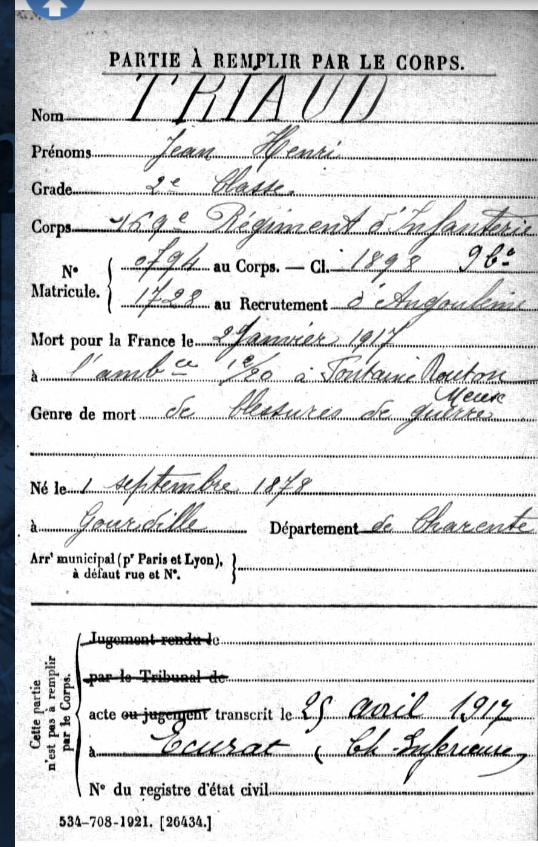 PARTIE À REMPLIR PAR LE CORPS.
Nom TRIAUD
Prénoms Jean Henri
Grade 2e Classe.
Corps 169e Régiment d'Infanterie
N° Matricule. { 9794 au Corps. — Cl. 1898
1728 au Recrutement d'Angoulème
Mort pour la France le 2 Janvier 1917
à l'ambce à Fontaine Routon
Meuse
Genre de mort de blessures de guerre
Né le 1 septembre 1878
à Gourville Département de Charente
Arrt municipal (pr Paris et Lyon),
à défaut rue et N°.
Cette partie n'est pas à remplir par le Corps.
Jugement rendu le
par le Tribunal de
acte ou jugement transcrit le 25 avril 1917
à Ecurat (Ch-Inférieure)
N° du registre d'état civil
534-708-1921. [26434.]